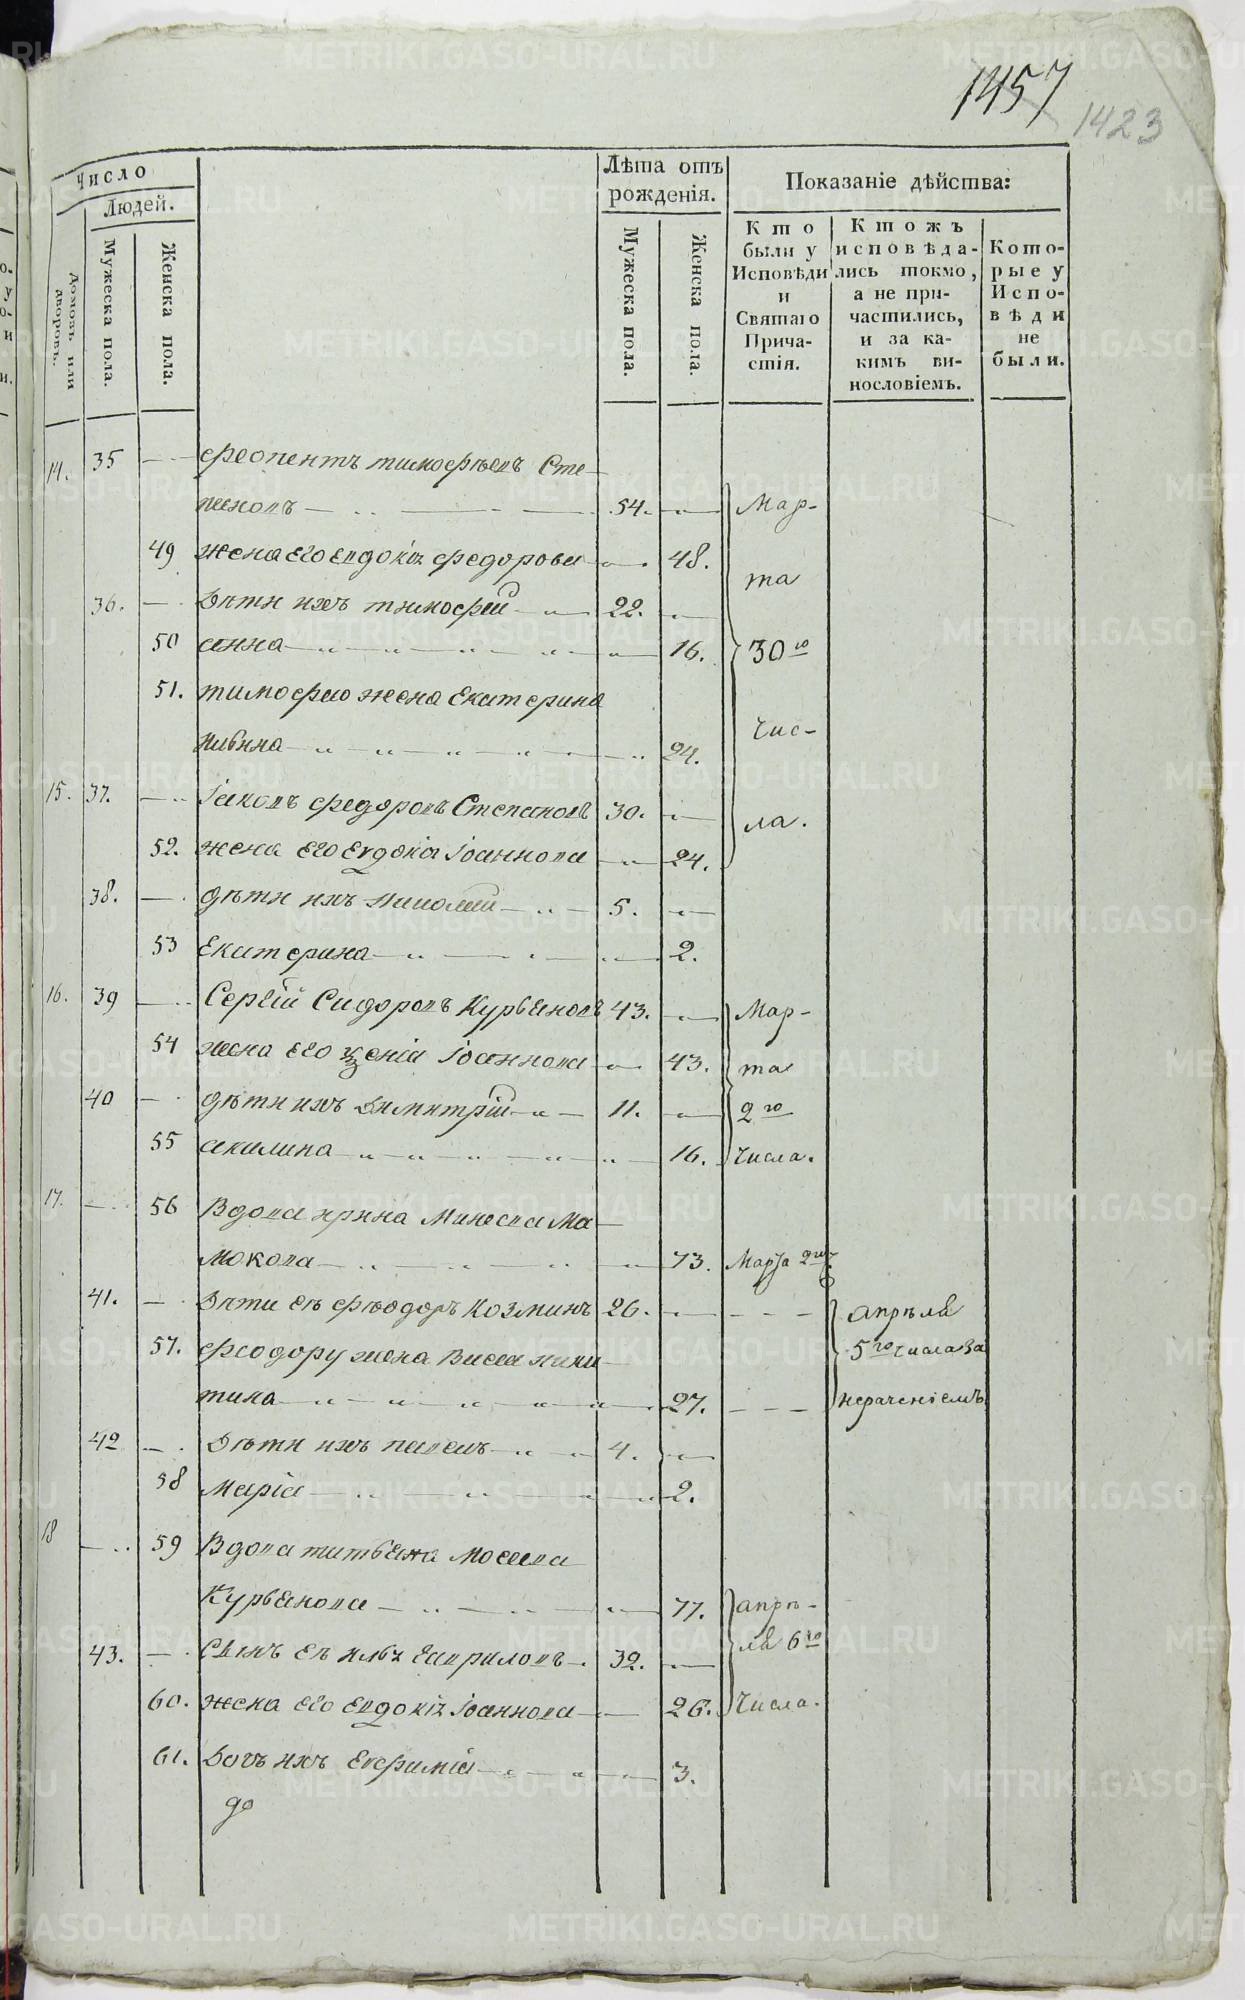 1457
1423
Число
Людей.
домовъ или дворовъ.
Мужеска пола.
Женска пола.
Лѣта отъ рожденія.
Мужеска пола.
Женска пола.
Показаніе дѣйства:
Кто были у Исповѣди и Святаго Причастія.
Ктожъ исповѣдались токмо, а не причастились, и за какимъ винословіемъ.
Которые у Исповѣди не были.
14. 35 феопентъ тимофѣевъ Сте-
пановъ 54. Мар-
49 жена его евдокіа федорова 48.
та
36. Дѣти ихъ тимофѣй 22.
50 анна 16. 30го
51. тимофею жена Екатерина
ильина 24. Чис-
15. 37. Іаковъ федоровъ Степановъ 30.
ла.
52. жена его Евдокіа Іоаннова 24.
38. дѣти ихъ николай 5.
53 Екатерина 2.
16. 39 Сергій Сидоровъ Курвяновъ 43. Мар-
54 жена его ѯенія Іоаннова 43. та
40 дѣти ихъ Димитрій 11. 2го
55 акилина 16. Числа.
17. 56 Вдова ирина Минеева Ма-
мокова 73. Марта 2го
41. Дѣти еѣ фѣодоръ Козминъ 26. апрѣля
57. феодору жена Васса ники- 5го числа За
тина 27. нераченіемъ
42 Дѣти ихъ павелъ 4.
58 Марія 2.
18 59 Вдова татьяна Мосеева
Курвянова 77. апрѣ-
43. Сынъ еѣ илья Гавриловъ 32. ля 6го
60. жена его Евдокіа Іоаннова 26. Числа.
61. Дочь ихъ Евфимія 3.
до